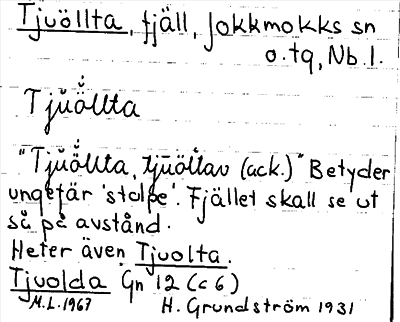 Tjuöllta, fjäll, Jokkmokks sn
o. tg, Nb. l.
Tjŭö́llta
"Tjŭö́llta, tjŭöltav (ack.)" Betyder
ungefär 'stolpe'. Fjället skall se ut
så på avstånd.
Heter även Tjuolta.
Tjuolda Gn 12 (c 6)
M.L. 1967 H. Grundström 1931